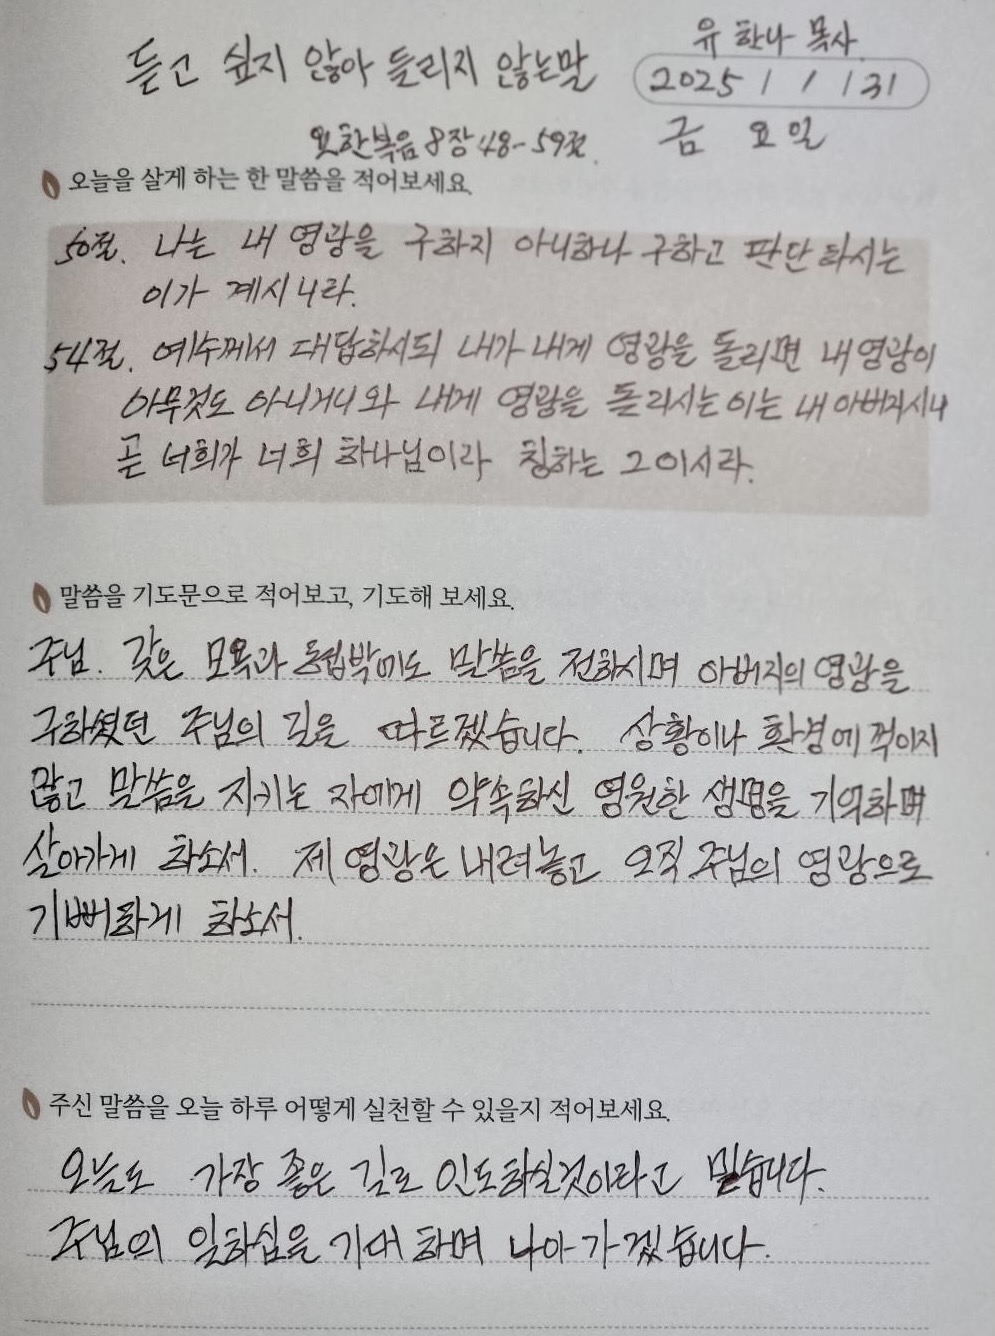 유 한나 목사
듣고 싶지 않아 들리지 않는말
2025 / 1 / 31
요한복음 8장 48-59절.
금 요일
오늘을 살게 하는 한 말씀을 적어보세요.
50절. 나는 내 영광을 구하지 아니하나 구하고 판단하시는
이가 계시니라.
54절. 예수께서 대답하시되 내가 내게 영광을 돌리면 내 영광이
아무것도 아니거니와 내게 영광을 돌리시는 이는 내 아버지시니
곧 너희가 너희 하나님이라 칭하는 그이시라.
말씀을 기도문으로 적어보고, 기도해 보세요.
주님. 갖은 모욕과 핍박에도 말씀을 전하시며 아버지의 영광을
구하셨던 주님의 길을 따르겠습니다. 상황이나 환경에 꺽이지
않고 말씀을 지키는 자에게 약속하신 영원한 생명을 기억하며
살아가게 하소서. 제 영광은 내려놓고 오직 주님의 영광으로
기뻐하게 하소서.
주신 말씀을 오늘 하루 어떻게 실천할 수 있을지 적어보세요.
오늘도 가장 좋은 길로 인도하실것이라고 믿습니다.
주님의 일하심을 기대하며 나아가겠습니다.